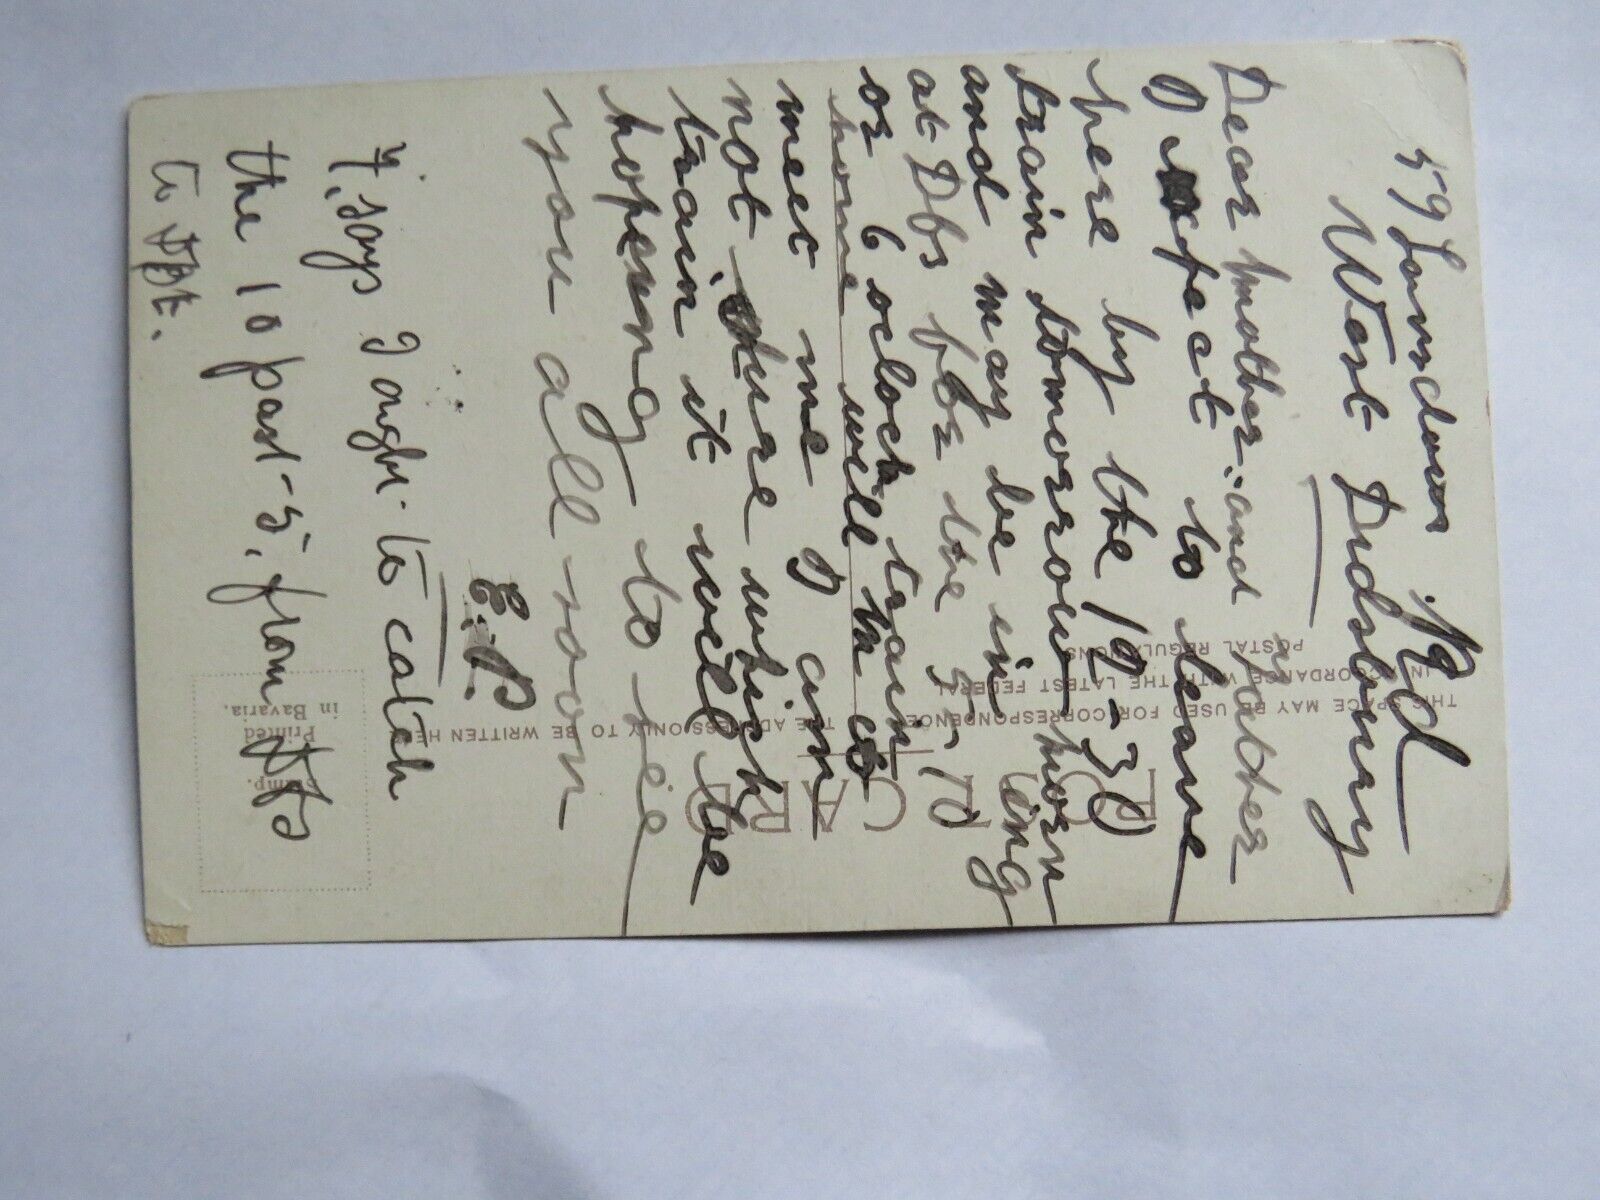 59 Lansdown Rd
West Didsbury
Dear mother and father
I expect to leave
here by the 12-30
train tomorrow morn
ing
and may be in
at Dbs bbr the 5-10
or 6 oclock train
home will
meet me I am
not shure which
train it will be
hopeing to see
you all soon
E.P.
F. says I ought to catch
the 10 past-5, from Dfs
to
POST CARD
THIS SPACE MAY BE USED FOR CORRESPONDENCE
IN ACCORDANCE WITH THE LATEST FEDERAL
POSTAL REGULATIONS
THE ADDRESS ONLY TO BE WRITTEN HERE
Stamp.
Printed
in Bavaria.